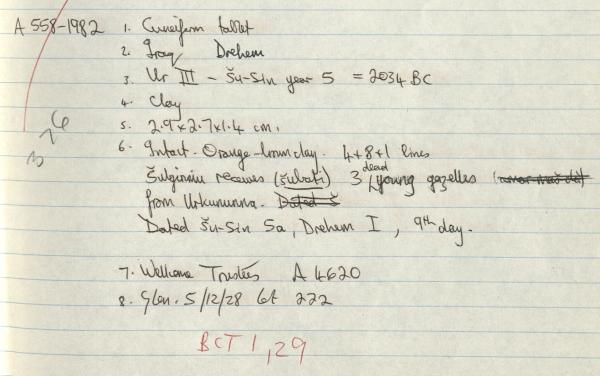 A 558-1982 1. Cuneiform tablet
2. Iraq Drehem
3. Ur III - Šu-Sin year 5 = 2034 BC
4. Clay
5. 2.9 x 2.7 x 1.4 cm.
6. Intact. Orange-brown clay. 4+8+1 lines
Šulginiu receives (šubati) 3 dead young gazelles
from Urkununna. Dated Š
Dated Šu-Sin 5a, Drehem I, 9th day.
7. Wellcome Trustees A 4620
8. Glen. 5/12/28 lot 222
BCT 1, 29